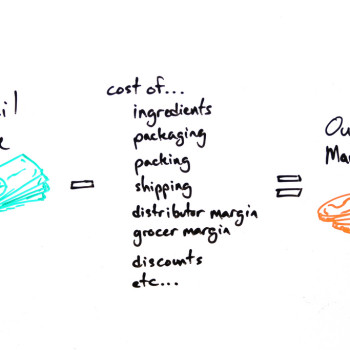 cost of...
ingredients
packaging
packing
shipping
distributor margin
grocer margin
discounts
etc...